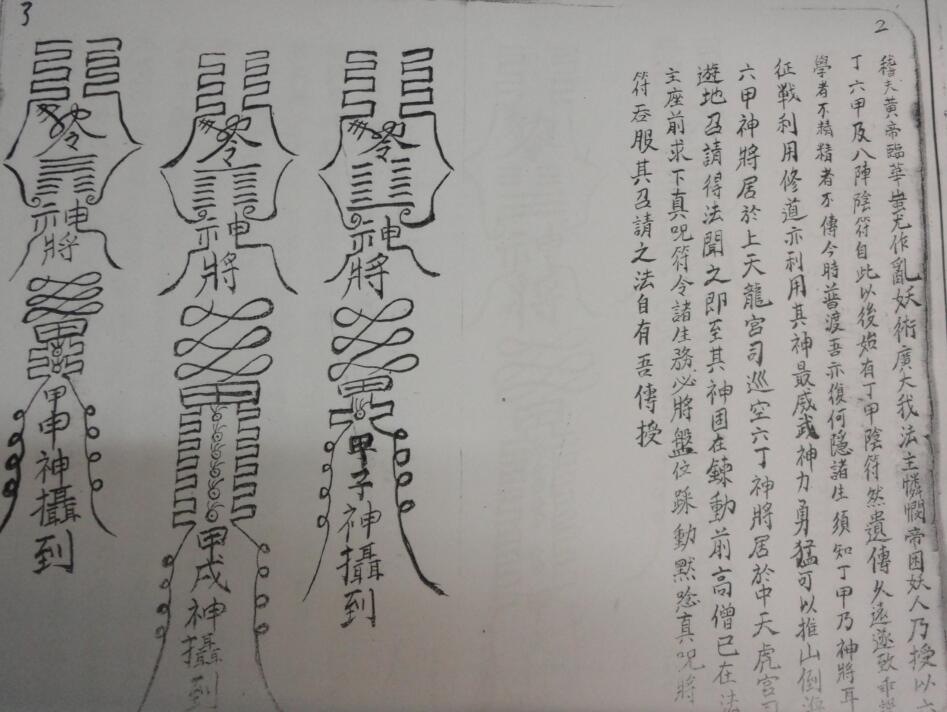 2
稽夫黃帝臨華蚩尤作亂妖術廣大我法主憐憫帝困妖人乃授以六
丁六甲及八陣陰符自此以後始有丁甲陰符然遺傳久遠遂致乖
學者不精精者不傳今時普渡吾亦復何隱諸生須知丁甲乃神將耳
征戰利用修道亦利用其神最威武神力勇猛可以推山倒海
六甲神將居於上天龍宮司巡空六丁神將居於中天虎宮司
遊地召請得法聞之即至其神固在鍊動前高僧已在法
主座前求下真咒符令諸生務必將盤位踩動默念真咒將
符吞服其召請之法自有吾傳授
3
令
神
將
甲子神攝到
令
神
將
甲戌神攝到
令
神
將
甲申神攝到